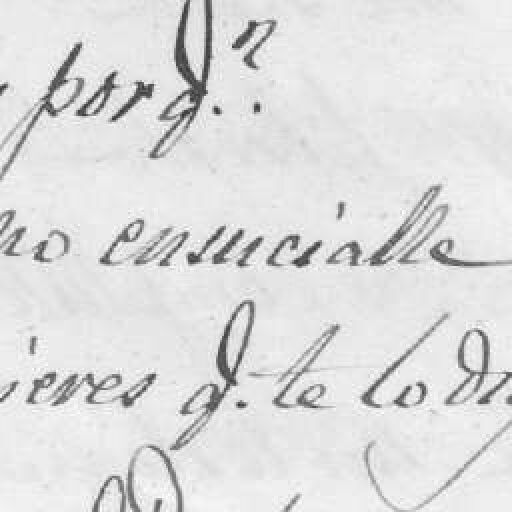 por q.n
no ensucialle
ieres q. te lo